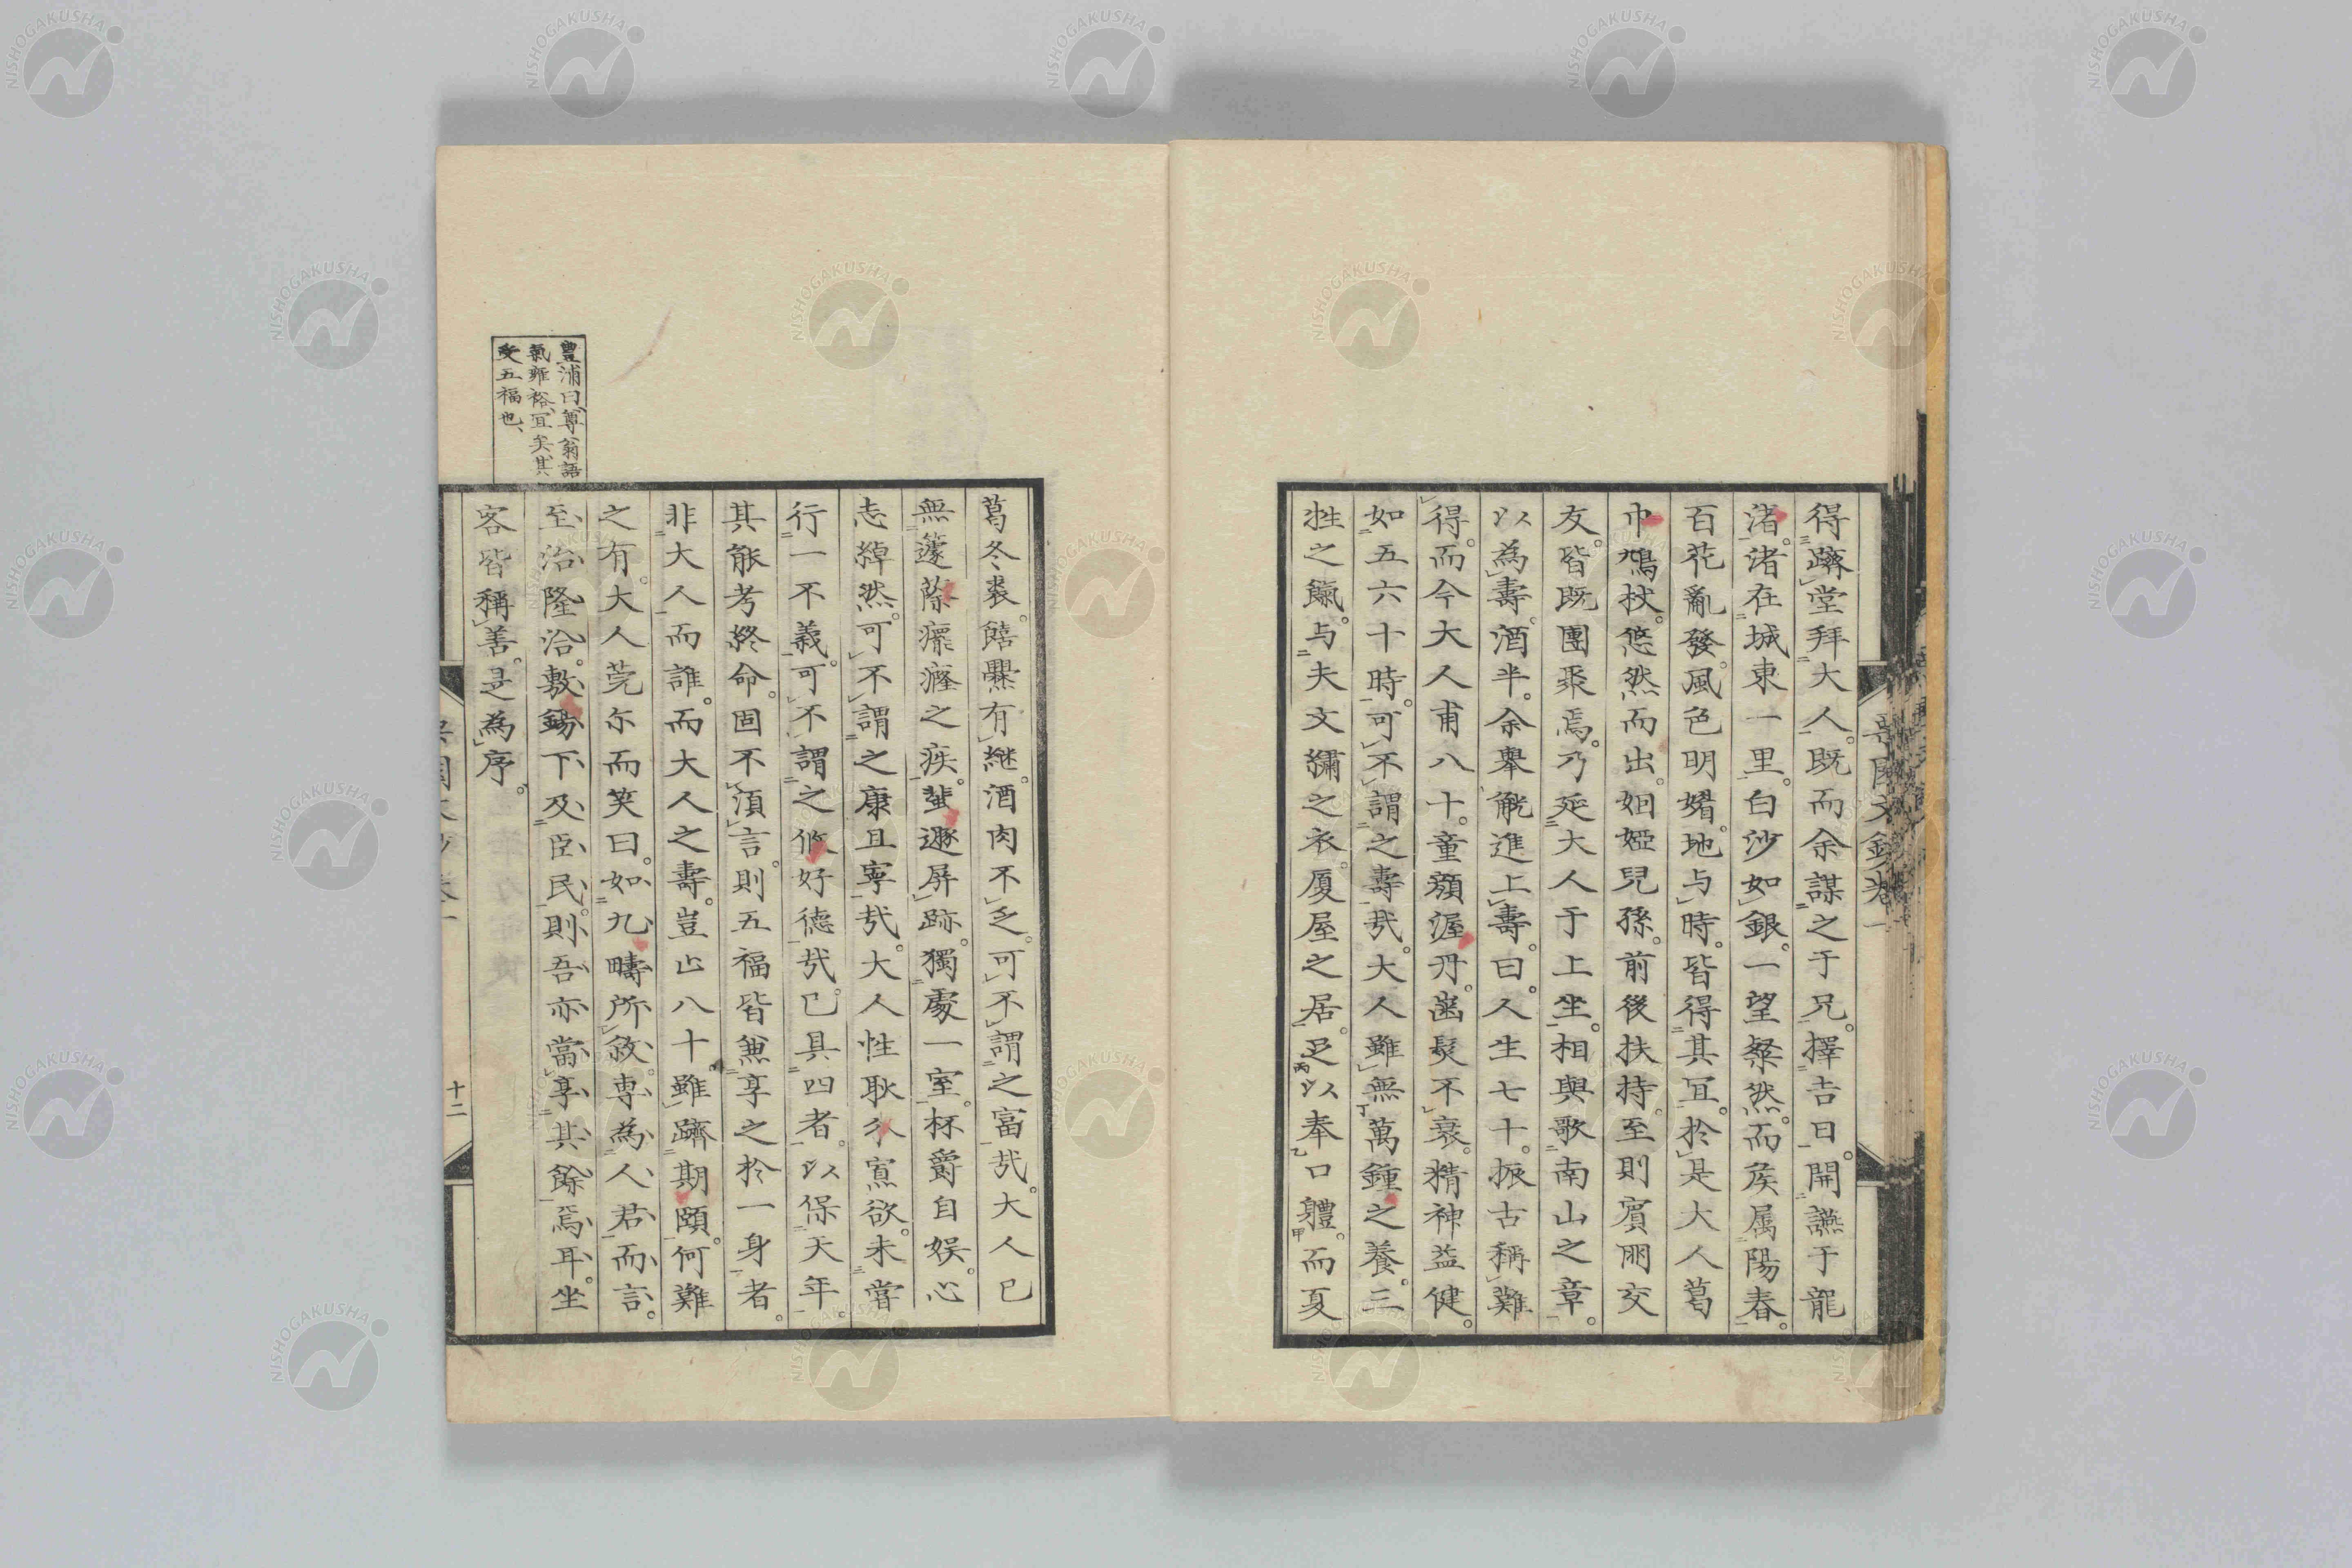 得躋堂拜大人。既而余謀之于兄。擇吉日。開讌于龍
渚。渚在城東一里。白沙如銀。一望粲然。而矦属陽春。
百花亂發。風色明媚。地与時。皆得其冝。於是大人葛
巾鳩杖。悠然而出。姻婭兒孫。前後扶持。至則賓朋交
友。皆既團聚焉。乃延大人于上坐。相與歌南山之章。
以為壽。酒半。余舉觥進上壽。曰。人生七十。振古稱難
得。而今大人甫八十。童顏渥丹。齒髮不衰。精神益健。
如五六十時。可不謂之壽哉。大人雖無萬鍾之養。三
牲之饋。与夫文繡之衣。厦屋之居。足以奉口軆。而夏
葛冬裘。饎爨有継。酒肉不乏。可不謂之富哉。大人已
無籧蒢癘癃之疾。蜚遯屏跡。獨處一室。杯爵自娯。心
志綽然。可不謂之康且寧哉。大人性耿介寡欲。未嘗
行一不義。可不謂之攸好德哉。已具四者。以保天年。
其能考終命。固不須言。則五福皆兼享之於一身者。
非大人而誰。而大人之壽。豈止八十。雖躋期頤。何難
之有。大人莞尓而笑曰。如九疇所敘。専為人君而言。
至治隆洽。敷錫下及臣民。則吾亦當享其餘焉耳。坐
客皆稱善。是為序。
豊浦曰、尊翁語
氣雍裕、冝矣其
受五福也、
十二